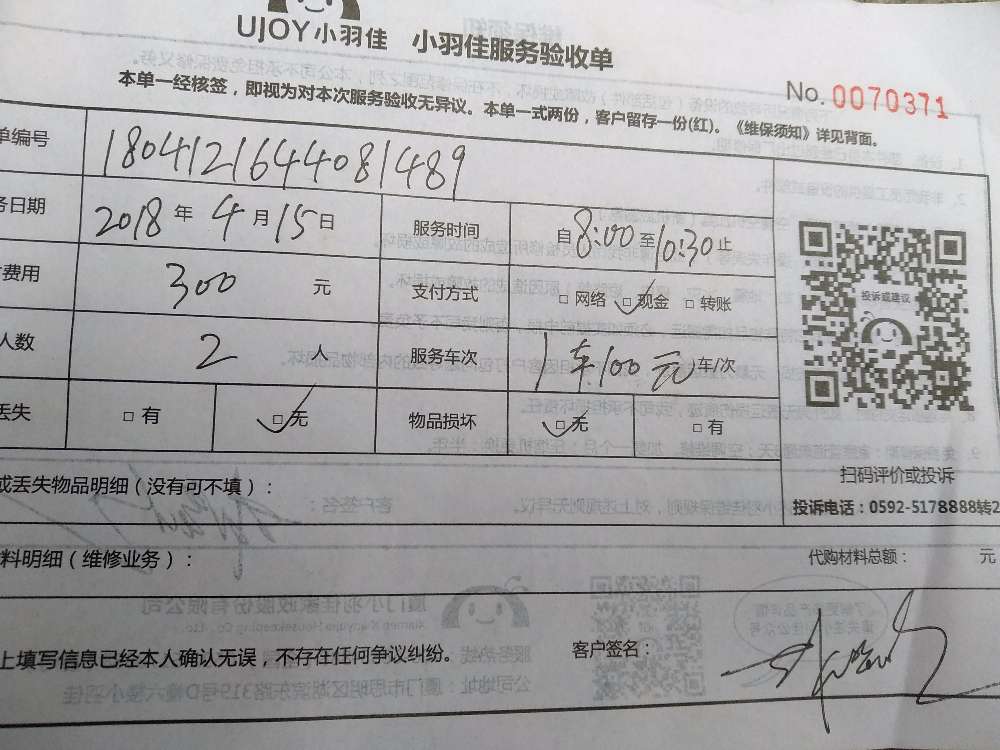 UJOY小羽佳 小羽佳服务验收单
No. 0070371
本单一经核签，即视为对本次服务验收无异议。本单一式两份，客户留存一份(红)。《维保须知》详见背面。
单编号 180412164408148​9
务日期 2018 年 4 月 15 日 服务时间 自 8:00 至 10:30 止
费用 300 元 支付方式 □ 网络 □ 现金 □ 转账
投诉或建议
人数 2 人 服务车次 1车100元 车/次
丢失 □ 有 □ 无 物品损坏 □ 无 □ 有
扫码评价或投诉
或丢失物品明细（没有可不填）：
投诉电话：0592-5178888转2
料明细（维修业务）： 代购材料总额： 元
上填写信息已经本人确认无误，不存在任何争议纠纷。 客户签名：